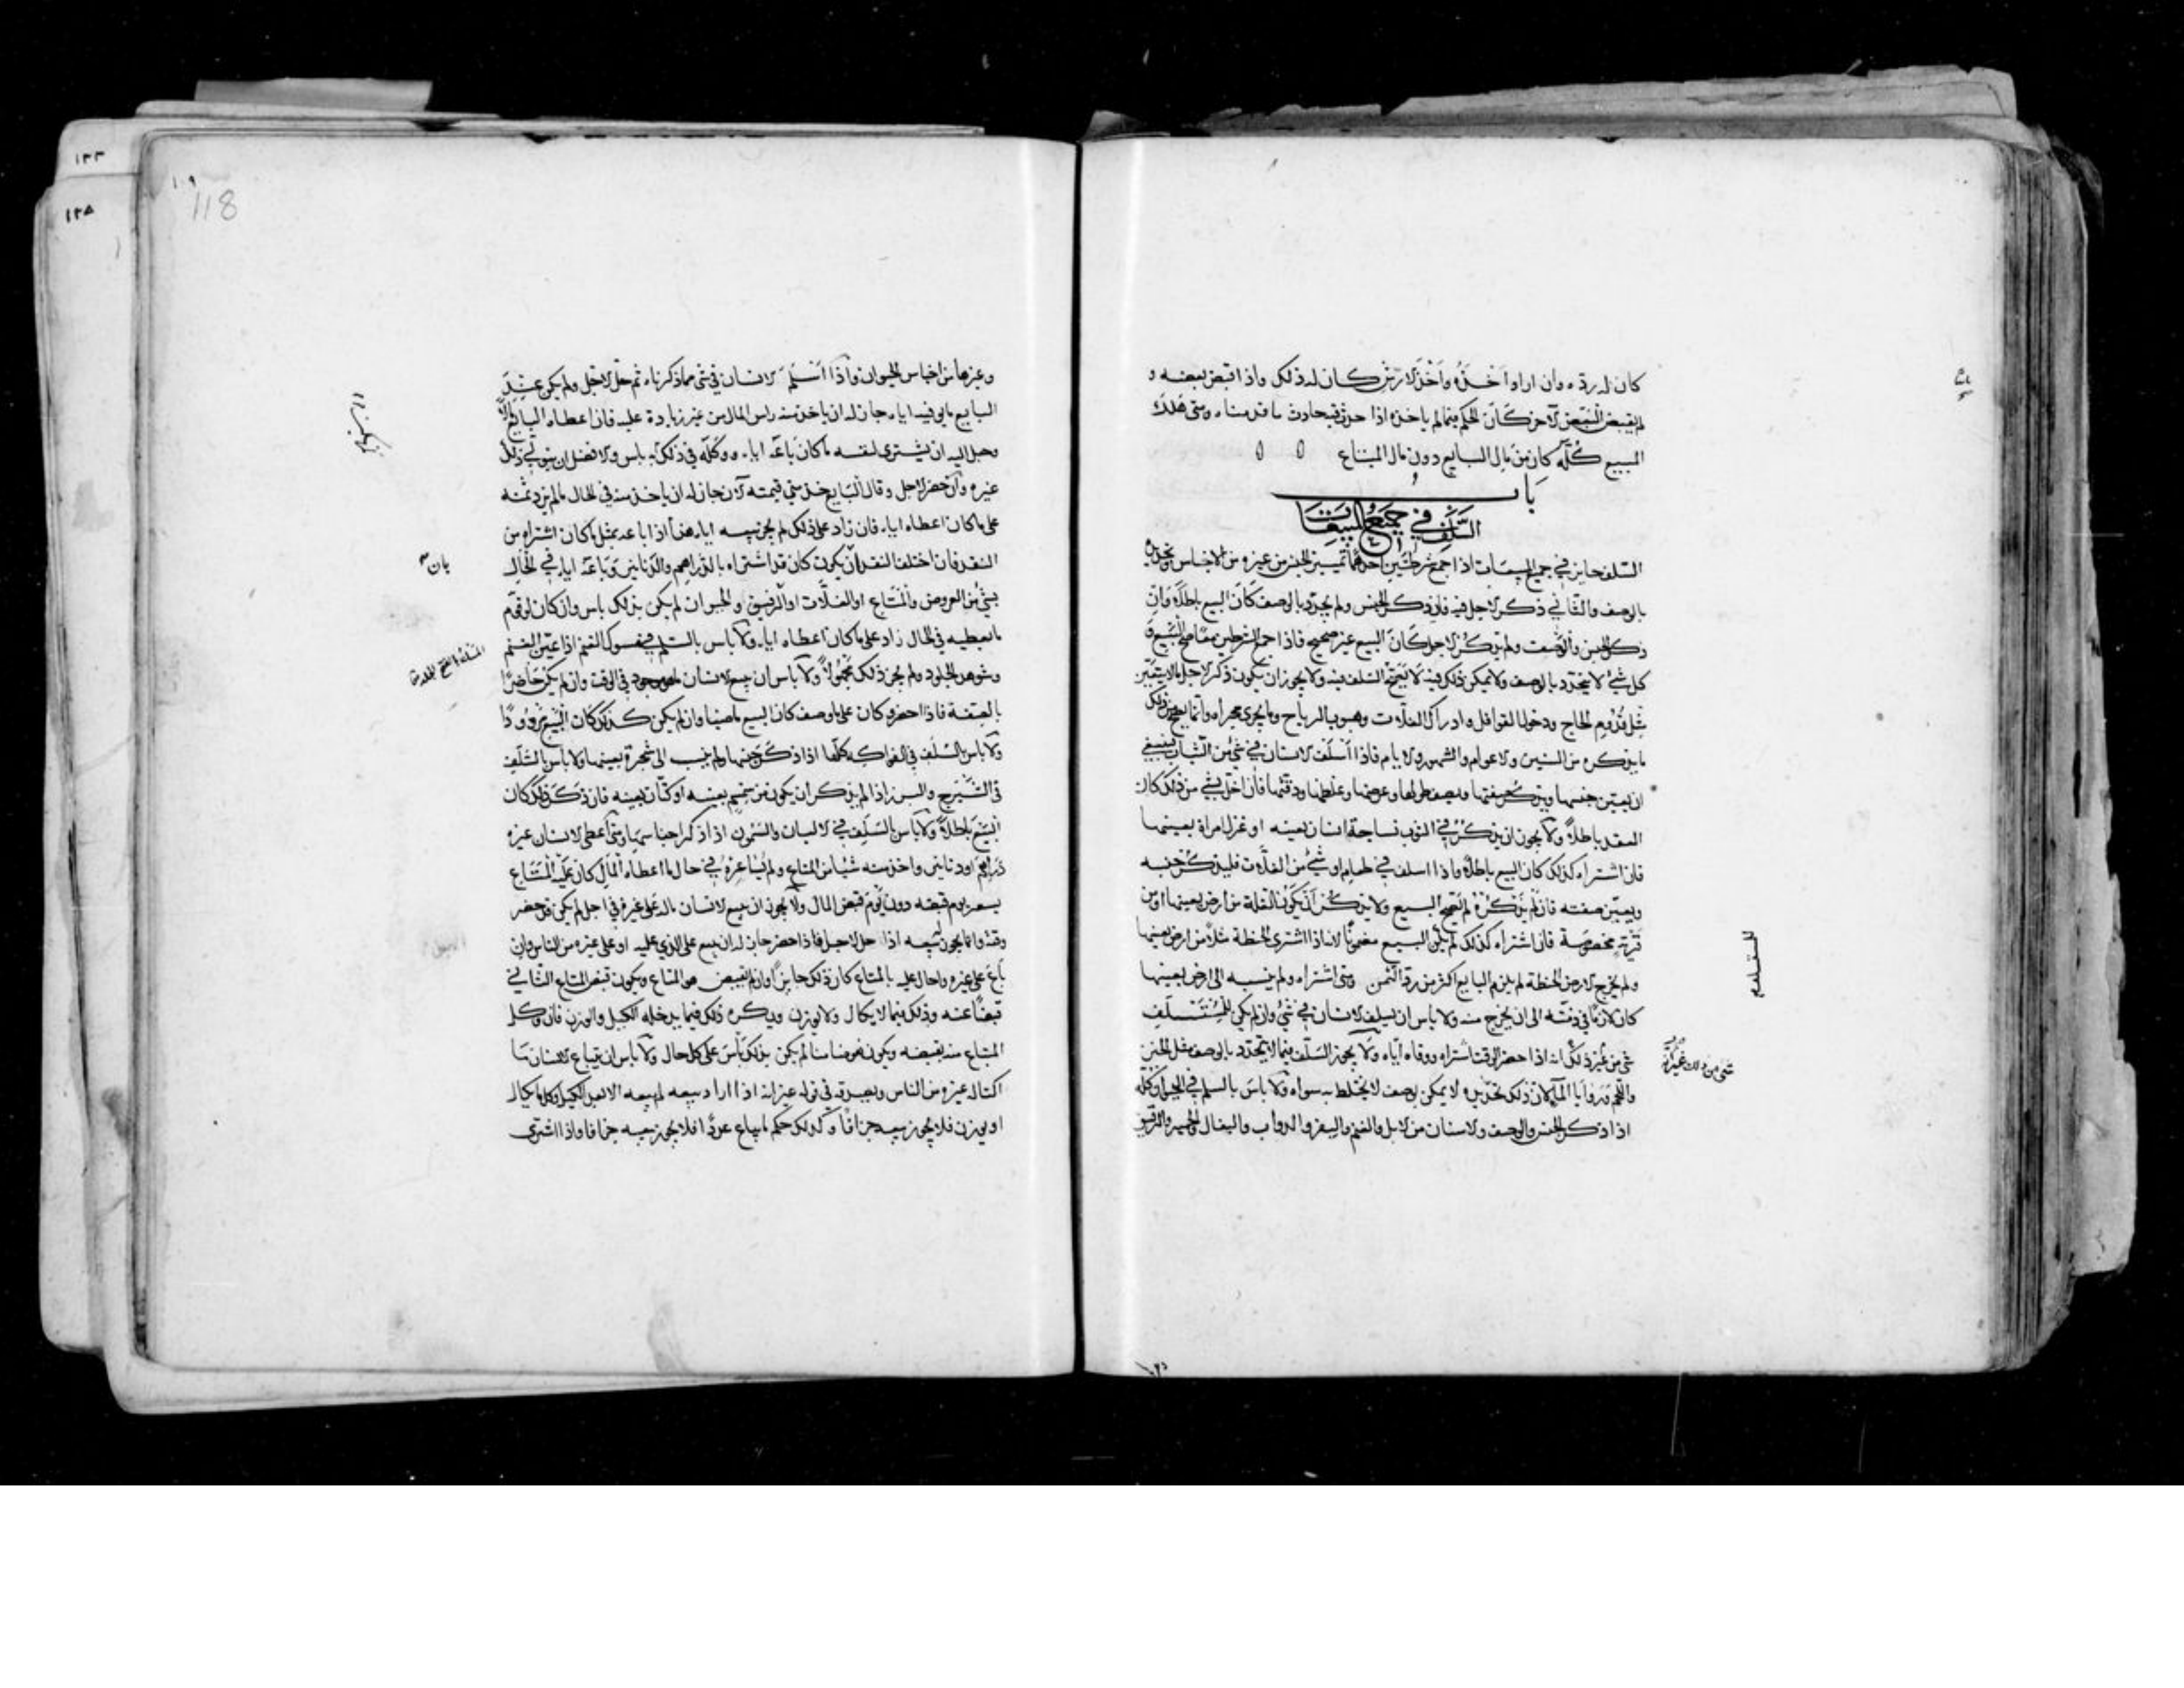 كان له رده وان اراد اخذه واخذ الارش كان له ذلك واذا قبض بعضه و
لم يقبض البعض الآخر كان الحكم فيما لم ياخذه اذا حدث فيه حادث ما قدمناه ومتى هلك
المبيع كله كان من مال البايع دون مال المبتاع
باب
السلف في جميع المبيعات
السلف جايز في جميع المبيعات اذا جمع شرطين احدهما تمييز الجنس من غيره من الاجناس وتحديده
بالوصف والثاني ذكر الاجل فيه فان ذكر الجنس ولم يحدد بالوصف كان البيع باطلا وان
ذكر الجنس والوصف ولم يذكر الاجل كان البيع غير صحيح فاذا جمع الشرطين معا صح البيع و
كل شئ لا يتحدد بالوصف ولا يمكن ذلك فيه لا يصح السلف فيه ولا يجوز ان يكون ذكر الاجل بما لا يتعين
مثل قدوم الحاج ودخول القوافل وادراك الغلات وهبوب الرياح وما يجري مجراه وانما يصح من ذلك
ما يذكره من السنين والاعوام والشهور والايام فاذا اسلف الانسان في شئ من الثياب ينبغي
ان يعين جنسها ويذكر صفتها ويصف طولها وعرضها وغلظها ودقتها فان اخل بشئ من ذلك كان
العقد باطلا ولا يجوز ان يذكر في الثوب نساجة انسان بعينه او غزل امراة بعينها
فان اشتراه كذلك كان البيع باطلا واذا اسلف في طعام او شئ من الغلات فليذكر جنسه
ويعين صفته فان لم يذكره لم يصح البيع ولا يذكر ان يكون الغلة من ارض بعينها او من
قرية مخصوصة فان اشتراه كذلك لم يكن البيع مضمونا لانه اذا اشترى الحنطة مثلا من ارض بعينها
ولم يخرج الارض الحنطة لم يلزم البايع اكثر من رد الثمن ومتى اشتراه ولم ينسبه الى ارض بعينها
كان لازما في ذمته الى ان يخرج منه ولا باس ان يسلف الانسان في شئ وان لم يكن للمستسلف
شئ من غير ذلك انه اذا حضر الوقت اشتراه ووفاه اياه ولا يجوز السلف فيما لا يتحدد بالوصف مثل الخبز
واللحم وروايا الماء لان ذلك تحديده لا يمكن بوصف لا يختلط به سواه ولا باس بالسلم في الحيوان كله
اذا ذكر الجنس والوصف والاسنان من الابل والغنم والبقر والدواب والبغال والحمير والرقيق
للمستسلم
118
وغيرها من اجناس الحيوان واذا اسلم الانسان في شئ مما ذكرناه ثم حل الاجل ولم يكن عند
البايع ما يوفيه اياه جاز له ان ياخذ منه راس المال من غير زيادة عليه فان اعطاه البايع مالا
وجعل اليه ان يشتري لنفسه ما كان باعه اياه ووكله في ذلك لم يكن به باس والافضل ان يتولى ذلك
غيره وان حضر الاجل وقال البايع خذ مني قيمته الآن جاز له ان ياخذ منه في الحال ما لم يزد ثمنه
على ما كان اعطاه اياه فان زاد على ذلك لم يجز بيعه اياه هذا اذا باعه بمثل ما كان اشتراه من
النقد فان اختلف النقدان يكون كان قد اشتراه بالدراهم والدنانير وباعه اياه في الحال
بشئ من العروض والمتاع او الغلات او الرقيق والحيوان لم يكن بذلك باس وان كان لو قوم
ما يعطيه في الحال زاد على ما كان اعطاه اياه ولا باس بالسلم في مسوك الغنم اذا عين الغنم
وشوهد الجلود ولم يجز ذلك مجهولا ولا باس ان يبيع الانسان ما هو موجود في الوقت وان لم يكن حاضرا
بالصفة فاذا احضر وكان على ما وصف كان البيع ماضيا وان لم يكن كذلك كان البيع مردودا
ولا باس بالسلف في الفواكه كلها اذا ذكر جنسها ولم ينسب الى شجرة بعينها ولا باس بالسلف
في الشيرج والبزر اذا لم يذكر ان يكون من سمسم بعينه او كتان بعينه فان ذكر ذلك كان
البيع باطلا ولا باس بالسلف في الالبان والسمون اذا ذكر اجناسها ومتى اعطى الانسان غيره
دراهم او دنانير واخذ منه شيئا من المتاع ولم يساعره في حال ما اعطاه المال كان عليه المتاع
بسعر يوم قبضه دون يوم قبض المال ولا يجوز ان يبيع الانسان ماله على غيره في اجل لم يكن قد حضر
وقته وانما يجوز بيعه اذا حل الاجل فاذا حضر جاز له ان يبيع على الذي عليه او على غيره من الناس وان
باع على غيره واحال عليه بالمتاع كان ذلك جايزا وان لم يقبض هو المتاع ويكون قبض المتاع الثاني
قبضا عنه وذلك فيما لا يكال ولا يوزن ويكره ذلك فيما يدخله الكيل والوزن فان وكل
المتاع منه بقبضه ويكون هو ضامنا لم يكن بذلك باس على كل حال ولا باس ان يبتاع الانسان ما
اكتاله غيره من الناس ويصدقه في قوله غير انه اذا اراد بيعه لم يبعه الا بعد الكيل وكل ما يكال
او يوزن فلا يجوز بيعه جزافا وكذلك حكم ما يباع عددا فلا يجوز بيعه جزافا واذا اشترى